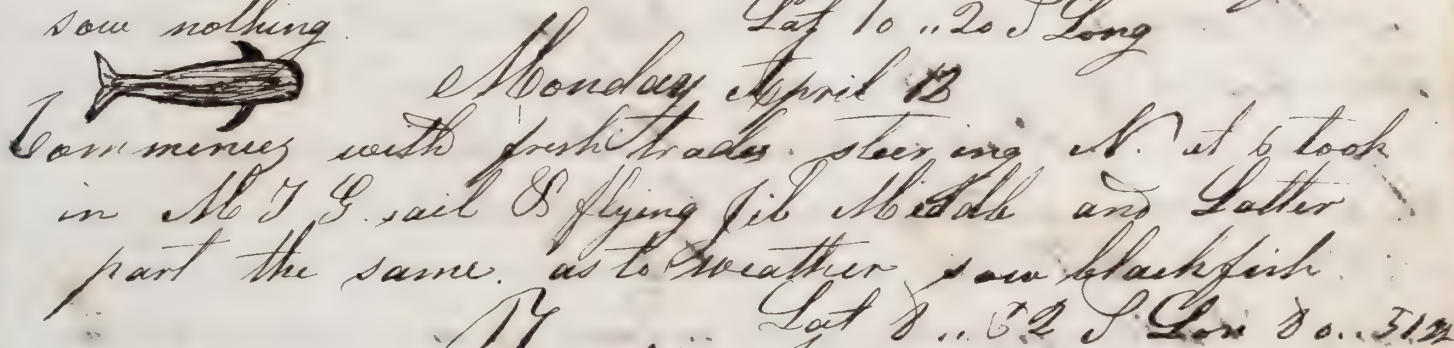 saw nothing. Lat 10 .. 20 S Long
Monday April 12
Commences with fresh trades. steering N. at 6 took
in M T G. sail & flying jib Middle and Latter
part the same. as to weather saw blackfish.
Lat 8 .. 52 S Lon 80 .. 51